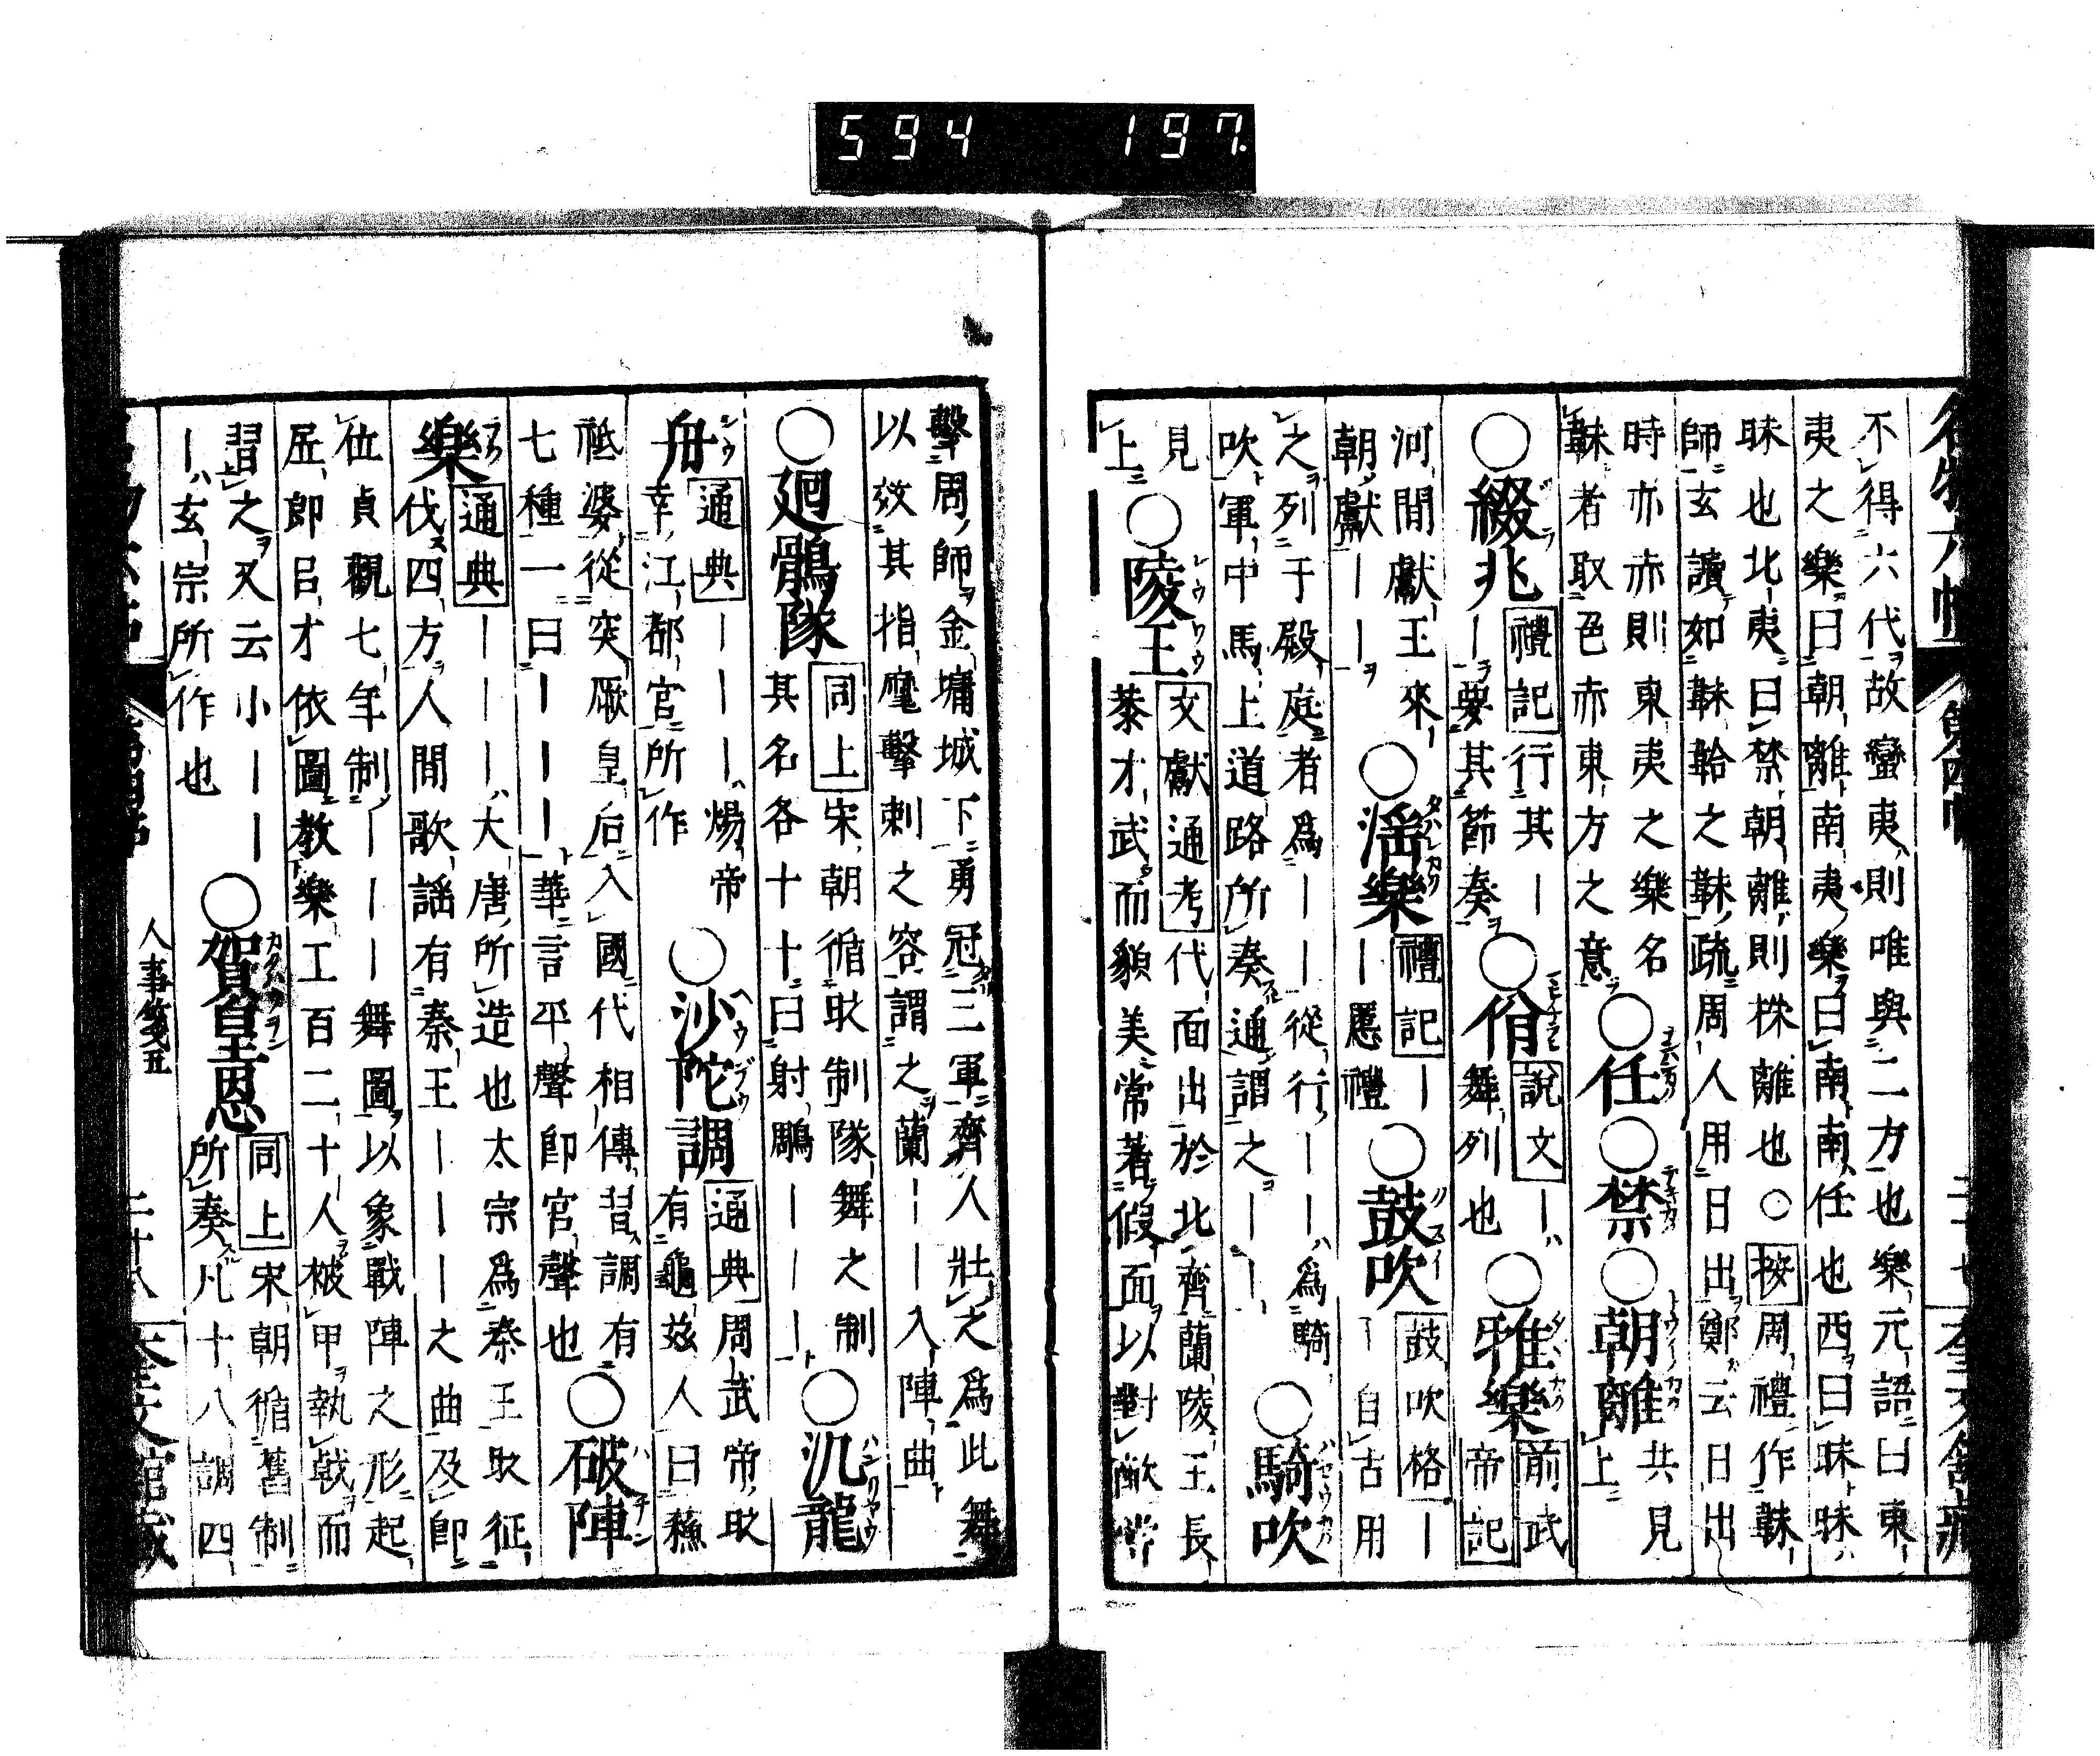 594 197.
不得六代故蠻夷則唯與二方也樂元語曰東
夷之樂曰朝離南夷樂曰南南任也西曰昧昧
昧也北夷曰禁朝離則株離也○按周禮作韎
師玄讀如韎韐之韎疏周人用日出鄭云日出
時亦赤則東夷之樂名
韎者取色赤東方之意
○任○禁○朝離共見上
○綴兆禮記行其ー
ーー要其節奏
○佾說文ー
舞列也
○雅樂前武帝記
河間獻王來ー
朝獻ーー
○淫樂禮記ー
ー慝禮
○鼓吹鼓吹格ー
ー自古用
之列于殿庭者爲ーー從行ーー爲騎
吹軍中馬上道路所奏通謂之ーー
○騎吹
見
上
○陵王文獻通考代面出於北齊蘭陵王長
恭才武而貌美常著假面以對敵嘗
擊周師金墉城下勇冠三軍齊人壯之爲此舞
以效其指麾擊刺之容謂之蘭ーー入陣曲
○廻鶻隊同上宋朝循取制隊舞之制
其名各十十曰射鵰ーーー
○汎龍
舟通典ーーー煬帝
幸江都官所作
○沙陀調通典周武帝取
有龜兹人曰蘇
祗婆從突厥皇后入國代相傳習調有
七種一曰ーーー華言平聲卽宮聲也
○破陣
樂通典ーーーー大唐所造也太宗爲秦王取征
伐四方人間歌謠有秦王ーーー之曲及卽
位貞觀七年制ーーー舞圖以象戰陣之形起
居郞呂才依圖教樂工百二十人被甲執戟而
習之又云小ーー
ー玄宗所作也
○賀皇恩同上宋朝循舊制
所奏凡十八調四
第四帖
人事箋五
二十八